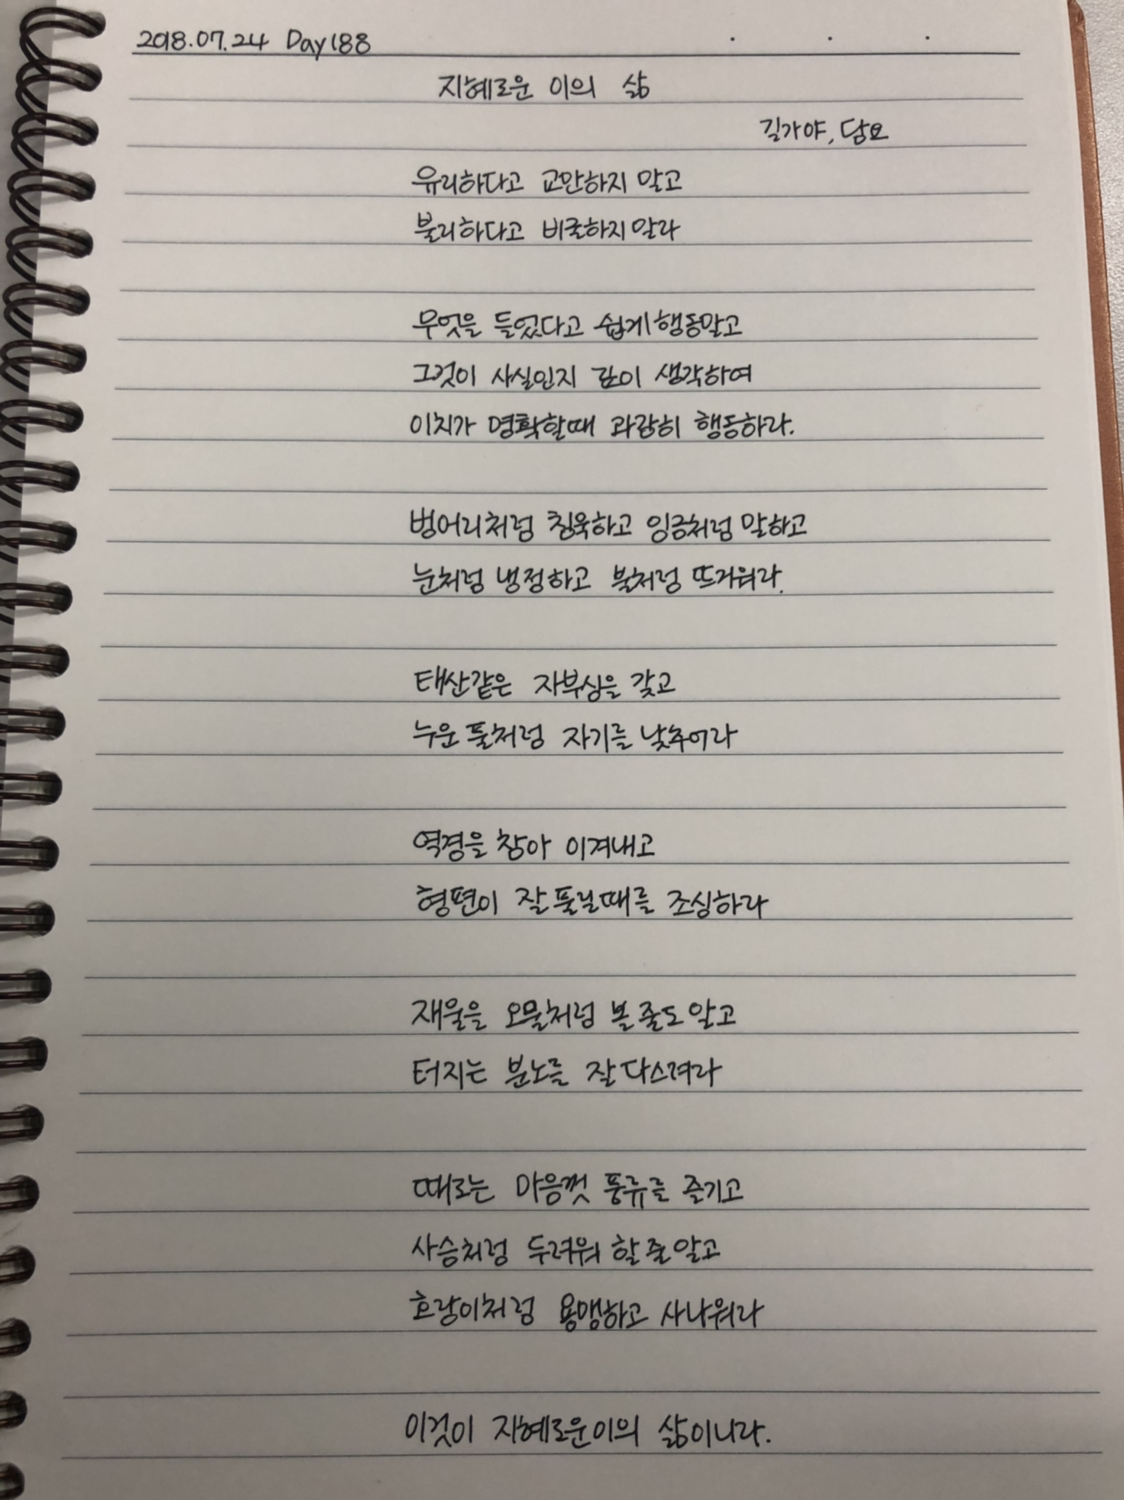 2018.07.24 Day188
지혜로운 이의 삶
길가야, 담요
유리하다고 교만하지 말고
불리하다고 비굴하지 말라
무엇을 들었다고 쉽게 행동말고
그것이 사실인지 깊이 생각하여
이치가 명확할때 과감히 행동하라.
벙어리처럼 침묵하고 임금처럼 말하고
눈처럼 냉정하고 불처럼 뜨거워라.
태산같은 자부심을 갖고
누운 풀처럼 자기를 낮추어라
역경을 참아 이겨내고
형편이 잘 풀릴때를 조심하라
재물을 오물처럼 볼 줄도 알고
터지는 분노를 잘 다스려라
때로는 마음껏 풍류를 즐기고
사슴처럼 두려워 할 줄 알고
호랑이처럼 용맹하고 사나워라
이것이 지혜로운 이의 삶이니라.